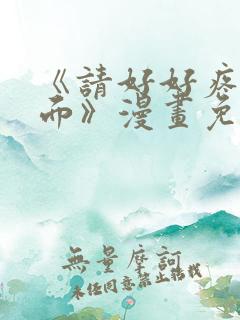 《請好好疼
而》漫畫免
無量摩訶
未经同意禁止转载